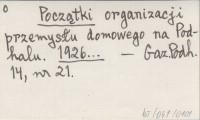 o
Początki organizacji
przemysłu domowego na Pod-
halu. 1926... — Gaz. Podh.
14, nr 21.